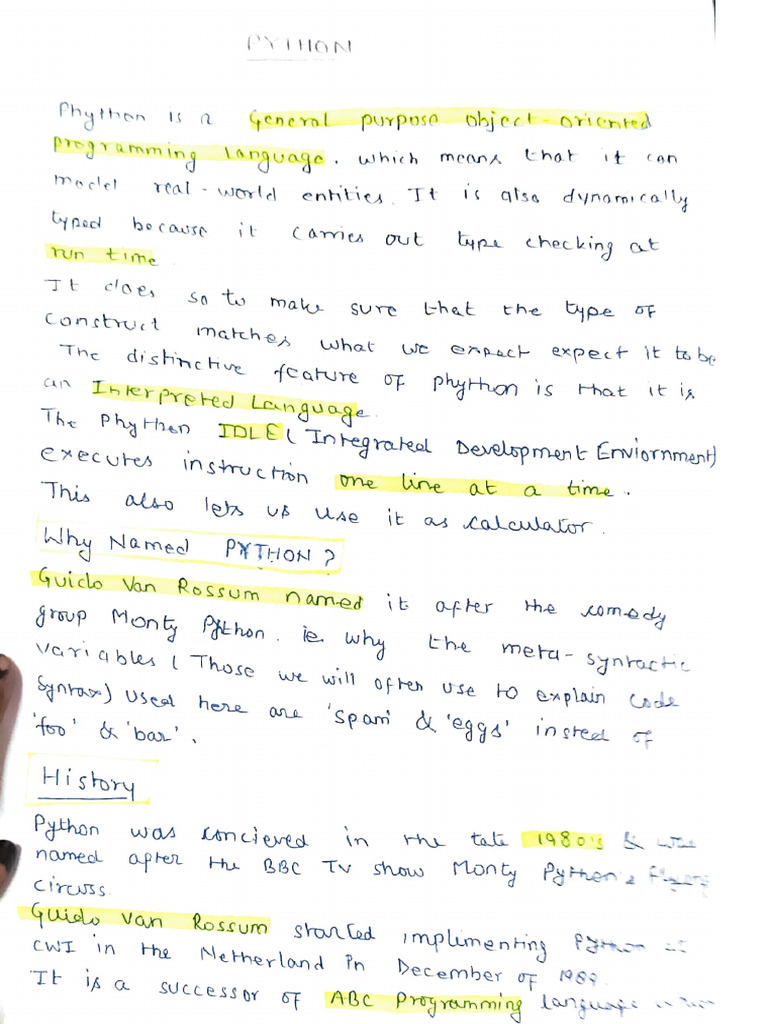 PYTHON
Phython is a General purpose object-oriented
programming language. which means that it can
model real-world entities. It is also dynamically
typed because it carries out type checking at
run time
It does so to make sure that the type of
construct matches what we expect expect it to be
The distinctive feature of phython is that it is
an Interpreted Language.
The Phython IDLE (Integrated Development Enviornment)
executes instruction one line at a time.
This also lets us use it as calculator.
Why Named PYTHON?
Guido Van Rossum named it after the comedy
group Monty Python. ie. why the meta-syntactic
variables (Those we will often use to explain code
syntax) used here are 'spam' & 'eggs' insteed of
'foo' & 'bar'.
History
Python was concieved in the late 1980's &
named after the BBC TV show Monty Python's
circuss.
Guido Van Rossum started implimenting Python
CWI in the Netherland in December of 1989.
It is a successor of ABC Programming language